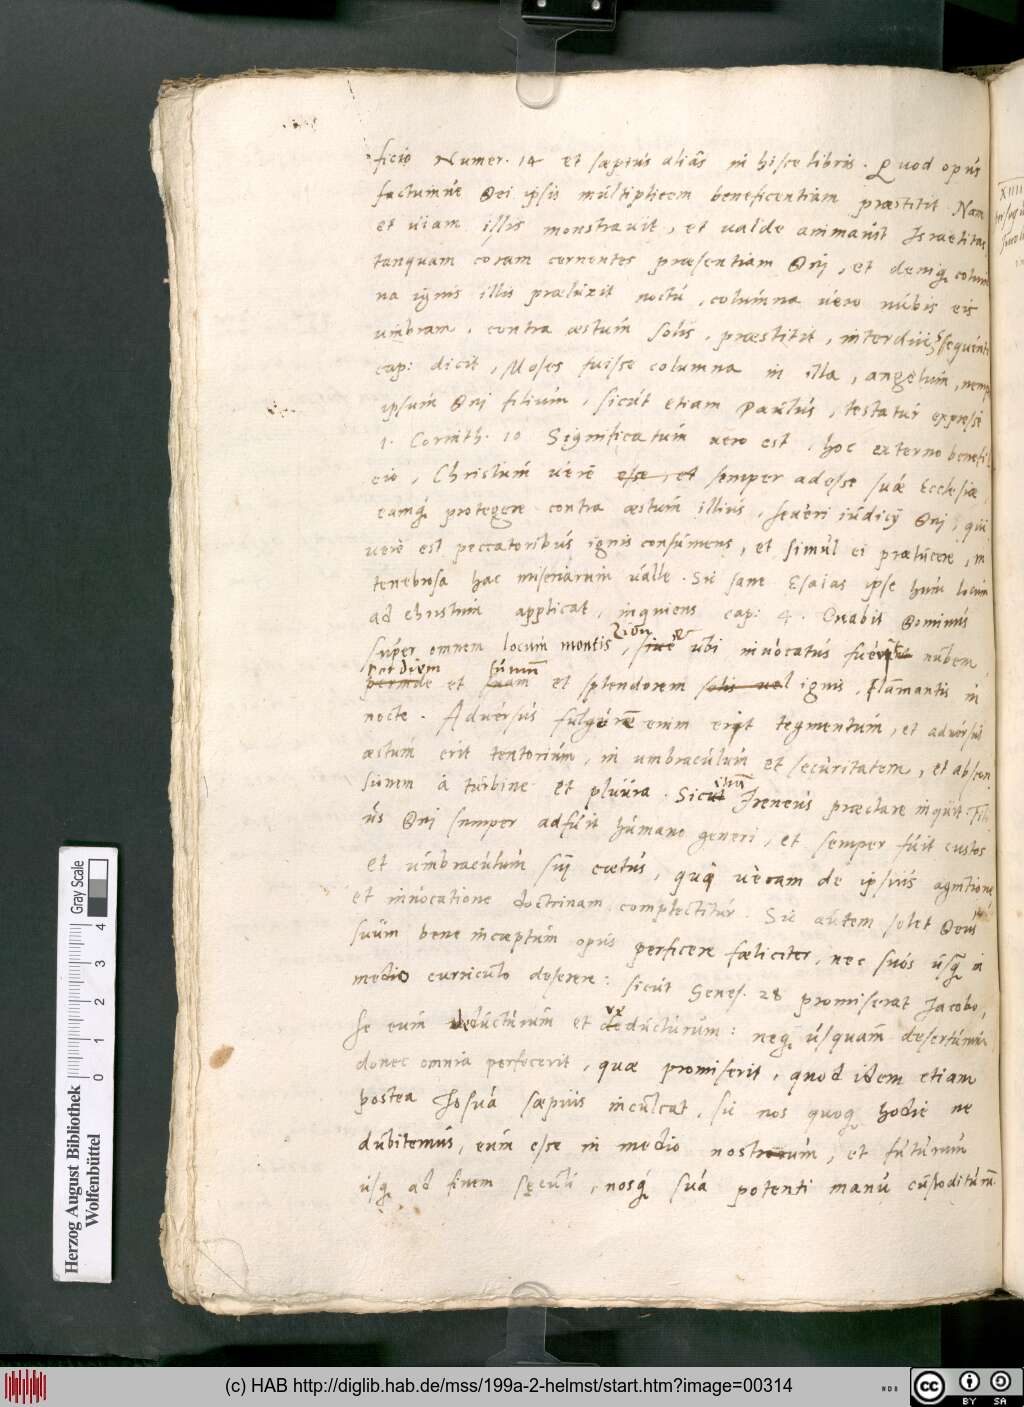 ficio Numer. 14 et sæpius aliâs in hisce libris. Quod opus
factumue Dei ipsis multiplicem beneficentiam præstitit. Nam
et uiam illis monstrauit, et ualde animauit Israelitas
tanquam coram cernentes præsentiam Dei, et deniq colum
na ignis illis præluxit noctu, columna uero nubis eis
umbram, contra æstum solis, præstitit, interdiu, sequenti
cap: dicit, Moses fuisse columna in illa, angelum, nempe
ipsum Dei filium, sicut etiam Paulus, testatur expresse
1. Corinth. 10 Significatum uero est, hoc externo benefi
cio, Christum uere esse, et semper adesse suæ Ecclesiæ
eamq protegere contra æstum illius, seueri iudicij Dei, qui
uerè est peccatoribus ignis consumens, et simul ei prælucere, in
tenebrosa hac miseriarum ualle. Sic sane Esaias ipse hunc locum
ad christum applicat, inquiens cap: 4. Creabit Dominus
super omnem locum montis Zion, siue et ubi inuocatus fuerit nubem
per diem fumum
per et suam et splendorem solis uel ignis, flamantis in
nocte. Aduersus fulgorem enim erit tegmentum, et aduersus
æstum erit tentorium, in umbraculum et securitatem, et abscon
sionem à turbine et pluuia. Sicut Ireneus præclare inquit Fili
us Dei semper adfuit humano generi, et semper fuit custos
et umbraculum sui cœtus, qui ueram de ipsius agnitione
et inuocatione doctrinam complectitur. Sic autem solet Deus
suum bene incæptum opus perficere fæliciter, nec suos usq in
medio curriculo deserere: sicut Genes. 28 promiserat Jacobo,
se eum deducturum et reducturum: neq usquam deserturum
donec omnia perfecerit, quæ promiserit, quod idem etiam
postea Josua sæpius inculcat, sic nos quoq hodie ne
dubitemus, eum esse in medio nostrum, et futurum
usq ad finem seculi, nosq sua potenti manu custoditurum
XIIII
Herzog August Bibliothek
Wolfenbüttel
Gray Scale
0 1 2 3 4
(c) HAB http://diglib.hab.de/mss/199a-2-helmst/start.htm?image=00314
cc BY SA